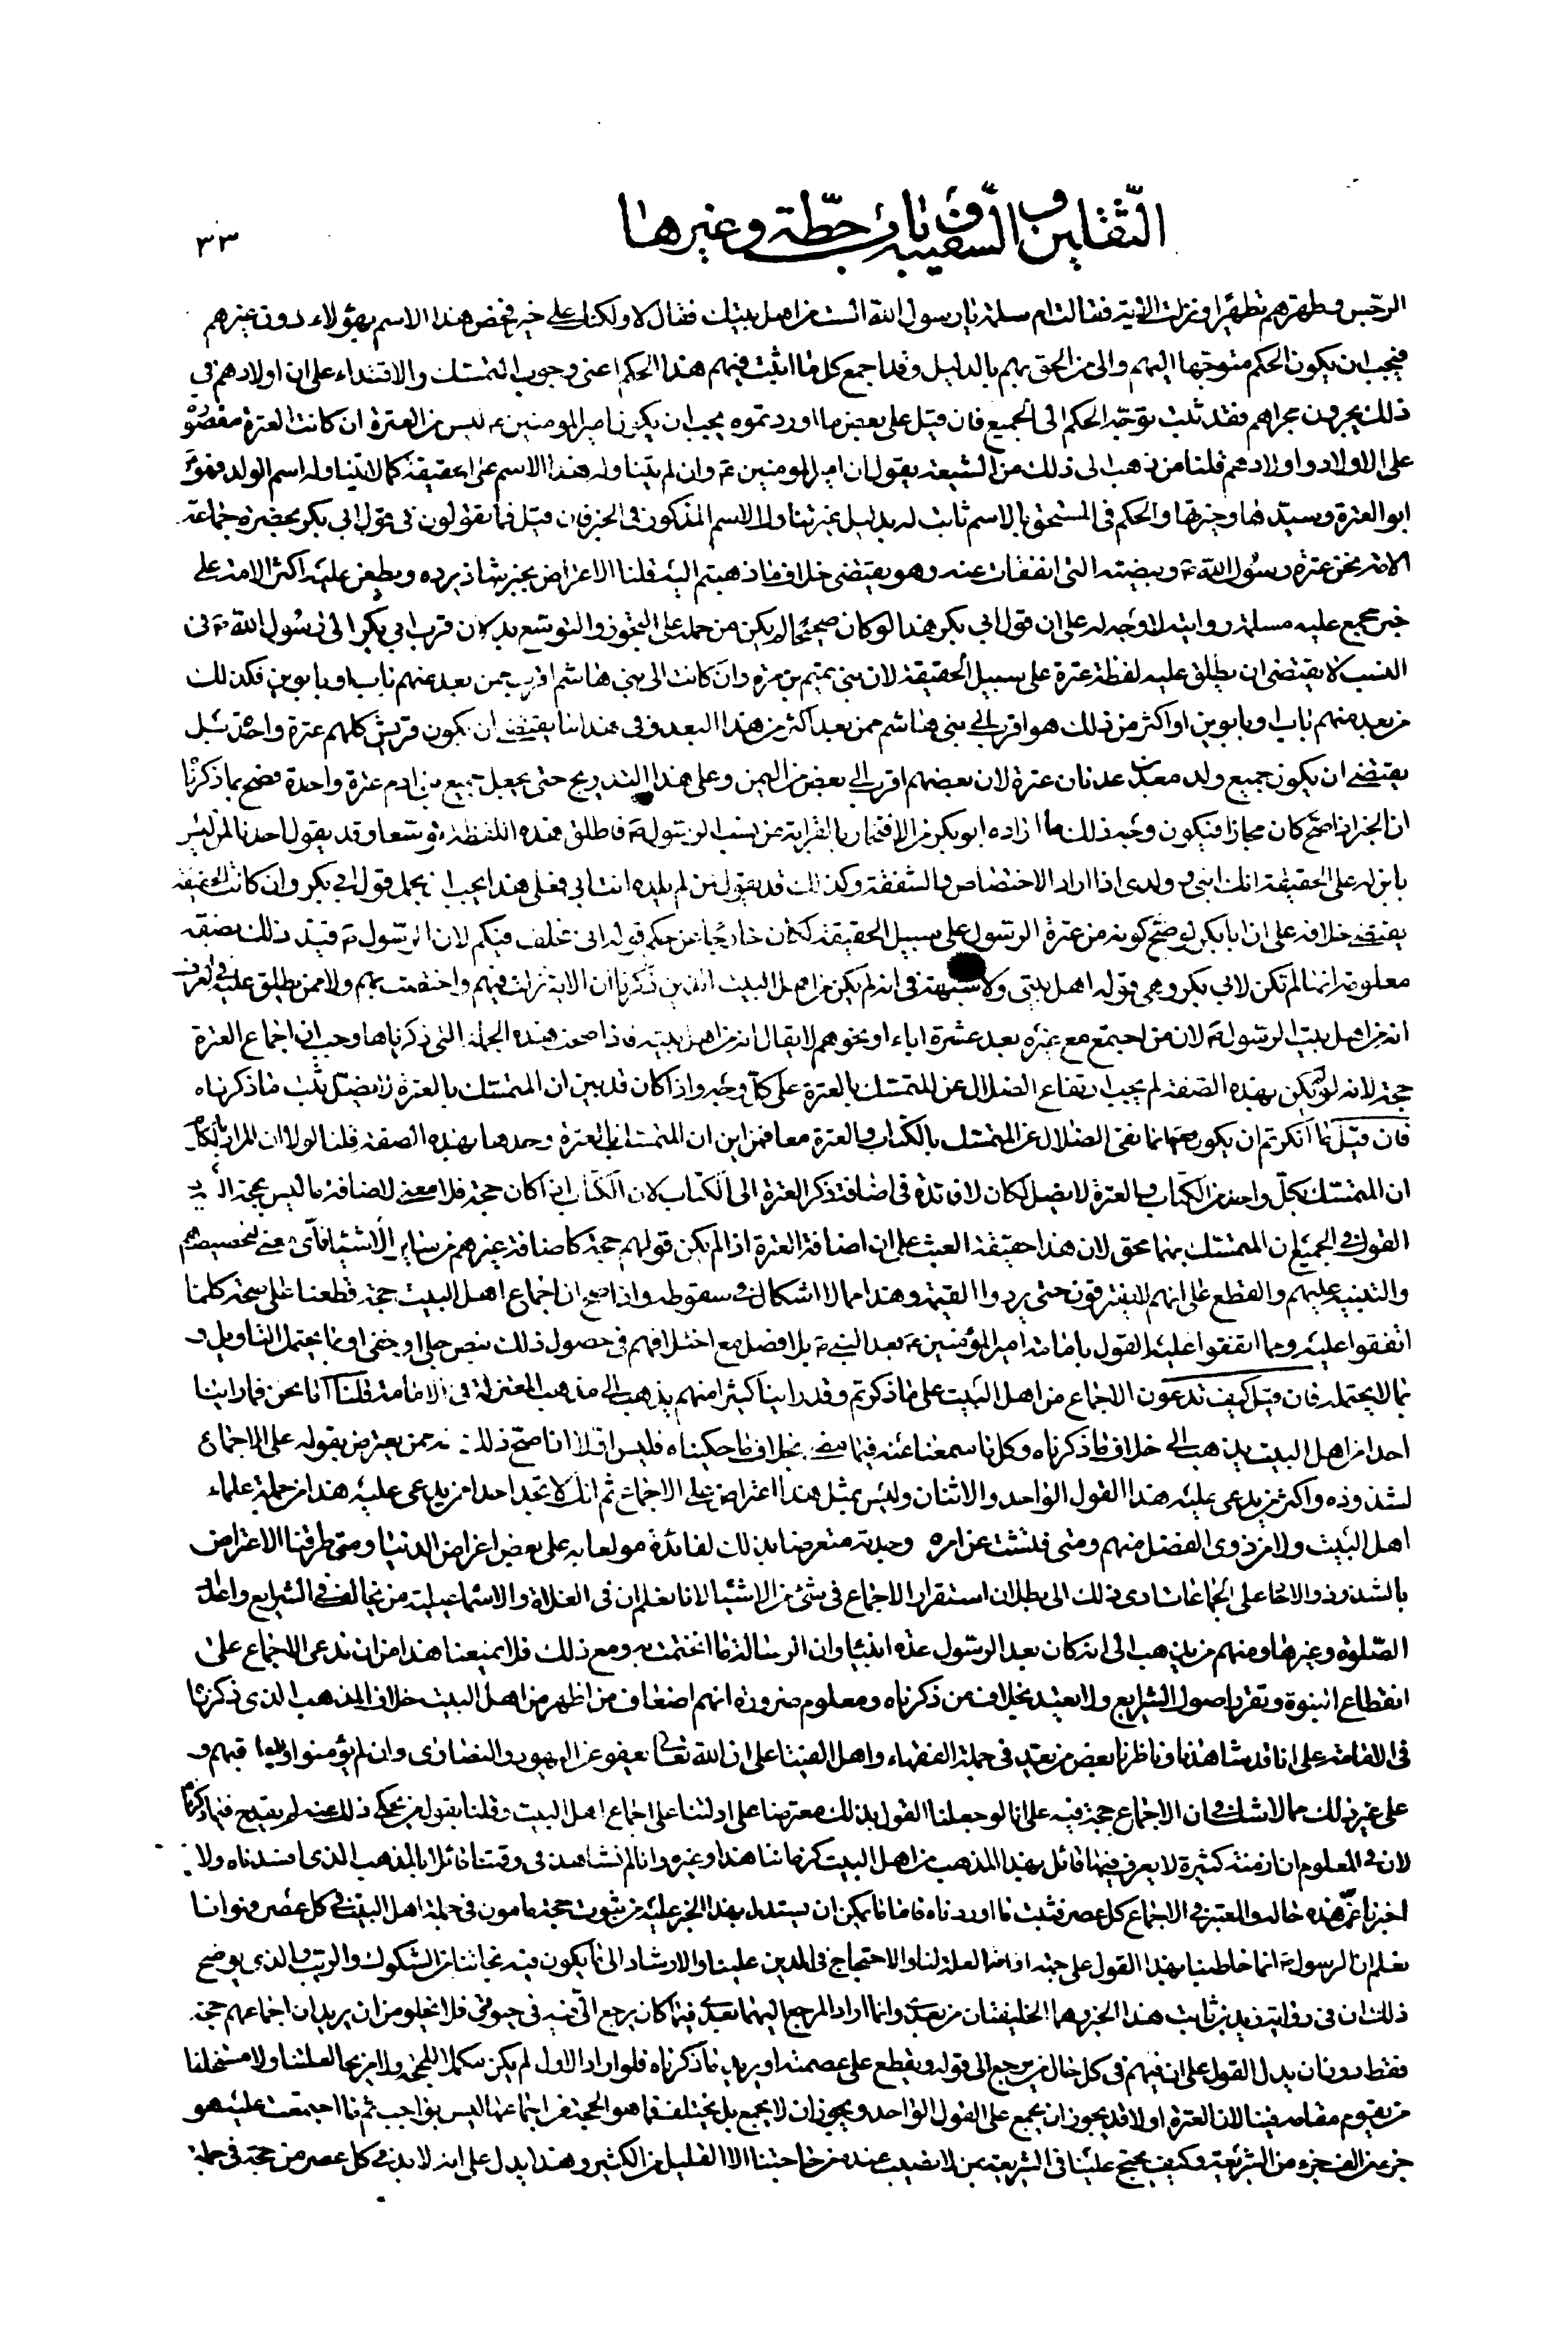 الثقلين و السفينة و باب حطة و غيرها
٣٣
الرجس و طهرهم تطهيرا و نزلت الآية فقالت ام سلمة يا رسول الله الست من اهل بيتك فقال لا ولكنك على خير فخص هذا الاسم بهؤلاء دون غيرهم
فيجب ان يكون الحكم متوجها اليهم والى من الحق بهم بالدليل وقد اجمع كل من اثبت فيهم هذا الحكم اعنى وجوب التمسك والاقتداء على ان اولادهم في
ذلك يجرون مجراهم فقد ثبت توجه الحكم الى الجميع فان قيل على بعض ما اوردتموه يجب ان يكون امير المومنين ع ليس من العترة ان كانت العترة مقصورة
على الاولاد و اولادهم قلنا من ذهب الى ذلك من الشيعة يقول ان امير المومنين ع وان لم يتناوله هذا الاسم على الحقيقة كما لا يتناوله اسم الولد فهو
ابو العترة و سيدها و خيرها والحكم فى المستحق بالاسم ثابت له بدليل غير تناول الاسم المذكور فى الخبر فان قيل فما تقولون فى قول ابى بكر بحضرة جماعة
الامة نحن عترة رسول الله ص و بيضته التى انفقات عنه وهو يقتضى خلاف ما ذهبتم اليه قلنا الاعتراض بخبر شاذ يرده و يطعن عليه اكثر الامة على
خبر مجمع عليه مسلمة روايته لا وجه له على ان قول ابى بكر هذا لو كان صحيحا لم يكن من حمله على التجوز والتوسع بد لان قرب ابى بكر الى رسول الله ص فى
النسب لا يقتضى ان يطلق عليه لفظة عترة على سبيل الحقيقة لان بنى تميم بن مرة وان كانت الى بنى هاشم اقرب ممن بعد عنهم باب او بابوين فكذلك
من بعد منهم باب او بابوين او اكثر من ذلك هو اقرب الى بنى هاشم ممن بعد اكثر من هذا البعد وفى هذا ما يقتضى ان يكون قريش كلهم عترة واحدة بل
يقتضى ان يكون جميع ولد معد بن عدنان عترة لان بعضهم اقرب الى بعض من اليمن وعلى هذا التدريج حتى يجعل جميع بنى ادم عترة واحدة فصح بما ذكرنا
ان الخبر اذا صح كان مجازا فيكون وجه ذلك ما اراده ابو بكر من الافتخار بالقرابة من نسب الرسول ص فاطلق هذه اللفظة توسعا وقد يقول احدنا لمن ليس
بابن له على الحقيقة انك ابنى و ولدى اذا اراد الاختصاص والشفقة وكذلك قد يقول لمن لم يلده انت ابى فعلى هذا يجب ان يحمل قول ابى بكر وان كانت الحقيقة
يقتضى خلافه على ان ابا بكر لو صح كونه من عترة الرسول على سبيل الحقيقة لكان خارجا عن حكم قوله انى مخلف فيكم لان الرسول ص قيد ذلك بصفة
معلوم انها لم تكن لابى بكر وهى قوله اهل بيتى ولا شبهة فى انه لم يكن من اهل البيت الذين ذكرنا ان الاية نزلت فيهم واختصت بهم ولا ممن يطلق عليه فى العرف
انه من اهل بيت الرسول ص لان من اجتمع مع غيره بعد عشرة اباء او نحوهم لا يقال انه من اهل بيته فاذا صحت هذه الجملة التى ذكرناها وجب ان اجماع العترة
حجة لانه لو لم يكن بهذه الصفة لم يجب ارتفاع الضلال عن المتمسك بالعترة على كل وجه واذا كان قد بين ان المتمسك بالعترة لا يضل ثبت ما ذكرناه
فان قيل ما انكرتم ان يكون ص انما نفى الضلال عن المتمسك بالكتاب والعترة معا فمن اين ان المتمسك بالعترة وحدها بهذه الصفة قلنا لولا ان المراد بالكلام
ان المتمسك بكل واحد من الكتاب والعترة لا يضل لكان لا فائدة فى اضافة ذكر العترة الى الكتاب لان الكتاب اذا كان حجة فلا معنى لاضافة ما ليس بحجة اليه
القول فى الجميع ان المتمسك بهما محق لان هذا حقيقة العبث على ان اضافة العترة اذا لم يكن قولهم حجة كاضافة غيرهم من ساير الاشياء فاى معنى لتخصيصهم
والتنبيه عليهم والقطع على انهم لا يفترقون حتى يردوا القيمة وهذا مما لا اشكال فى سقوطه واذا صح ان اجماع اهل البيت حجة قطعنا على صحة كل ما
اتفقوا عليه ومما اتفقوا عليه القول بامامة امير المؤمنين ع بعد النبى ص بلا فصل مع اختلافهم فى حصول ذلك بنص جلى او خفى او بما يحتمل التاويل و
ما لا يحتمله فان قيل كيف تدعون الاجماع من اهل البيت على ما ذكرتم وقد راينا كثيرا منهم يذهب الى مذهب المعتزلة فى الامامة قلنا اما نحن فما راينا
احدا من اهل البيت يذهب الى خلاف ما ذكرناه وكل ما سمعنا عنه فيما مضى بخلاف ما حكيناه فليس اولا اذا صح ذلك ممن يعترض بقوله على الاجماع
لشذوذه واكثر من يدعى عليه هذا القول الواحد والاثنان وليس بمثل هذا اعتراض على الاجماع ثم انك لا تجد احدا من يدعى عليه هذا من جملة علماء
اهل البيت ولا من ذوى الفضل منهم ومتى فتشت عن امره وجدته متعرضا بذلك لفائدة مولعا به على بعض اغراض الدنيا ومتى طرقنا الاعتراض
بالشذوذ والاحاد على الجماعات ادى ذلك الى بطلان استقرار الاجماع فى شئ من الاشياء لانا نعلم ان فى الغلاة والاسماعيلية من يخالف فى الشرايع واعداد
الصلوة وغيرها ومنهم من يذهب الى انه كان بعد الرسول عدة انبياء وان الرسالة ما انختمت به ومع ذلك فلا يمنعنا هذا من ان ندعى الاجماع على
انقطاع النبوة وتقرر اصول الشرايع ولا يعتد بخلاف من ذكرناه ومعلوم ضرورة انهم اضعاف من اظهر من اهل البيت خلاف المذهب الذى ذكرنا
فى الامامة على انا قد شاهدنا وناظرنا بعض من يعد فى جملة الفقهاء واهل الفتيا على ان الله تعالى يعفو عن اليهود والنصارى وان لم يؤمنوا ولا يعاقبهم و
على غير ذلك مما لا شك فى ان الاجماع حجة فيه على انا لو جعلنا القول بذلك معترضا على ادلتنا على اجماع اهل البيت وقلنا بقول من يحكى ذلك عنه لم يقدح فيما ذكرناه
لان فى المعلوم ان ازمنة كثيرة لا يعرف فيها قائل بهذا المذهب من اهل البيت كزماننا هذا وغيره وانا لم نشاهد فى وقتنا قائلا بالمذهب الذى افسدناه ولا
اخبرنا عمن هذه حاله والمعتبر فى الاجماع كل عصر فثبت ما اوردناه فاما ما يمكن ان يستدل بهذا الخبر عليه من ثبوت حجة مامون فى جملة اهل البيت فى كل عصر فهو انا
نعلم ان الرسول ص انما خاطبنا بهذا القول على جهة ازاحة العلة لنا والاحتجاج فى الدين علينا والارشاد الى ما يكون فيه نجاتنا من الشكوك والريب والذى يوضح
ذلك ان فى رواية زيد بن ثابت هذا الخبر وهما الخليفتان من بعدى وانما اراد المرجع اليهما بعدى فيما كان يرجع الى فيه فى حيوتى فلا يخلو من ان يريد ان اجماعهم حجة
فقط دون ان يدل القول على ان فيهم فى كل حال من يرجع الى قوله ويقطع على عصمته او يريد ما ذكرناه فلو اراد الاول لم يكن مكملا للحجة ولا مزيحا لعلتنا ولا مستخلفا
من يقوم مقامه فينا لان العترة اولا قد يجوز ان يجمع على القول الواحد ويجوز ان لا يجمع بل يختلف فما هو الحجة من اجماعها ليس بواجب ثم ما اجتمعت عليه هو
جزء من الف جزء من الشريعة وكيف يحتج علينا فى الشريعة بمن لا نصيب عنده من حاجتنا الا القليل من الكثير وهذا يدل على انه لا بد فى كل عصر من حجة فى جملة